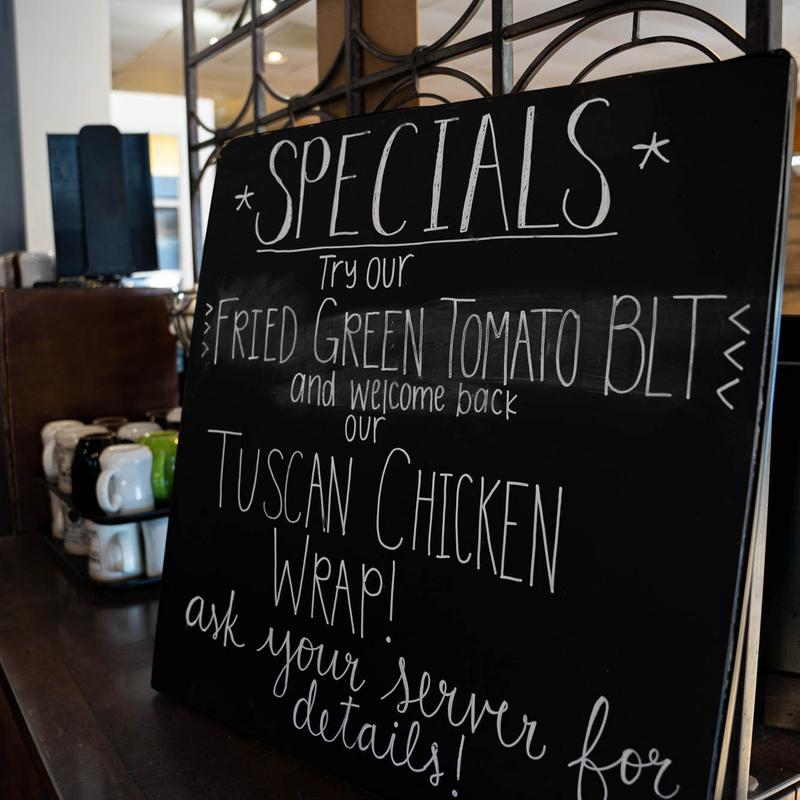 * SPECIALS *
Try our
FRIED GREEN TOMATO BLT
and welcome back
our
TUSCAN CHICKEN
WRAP!
ask your server for
details!